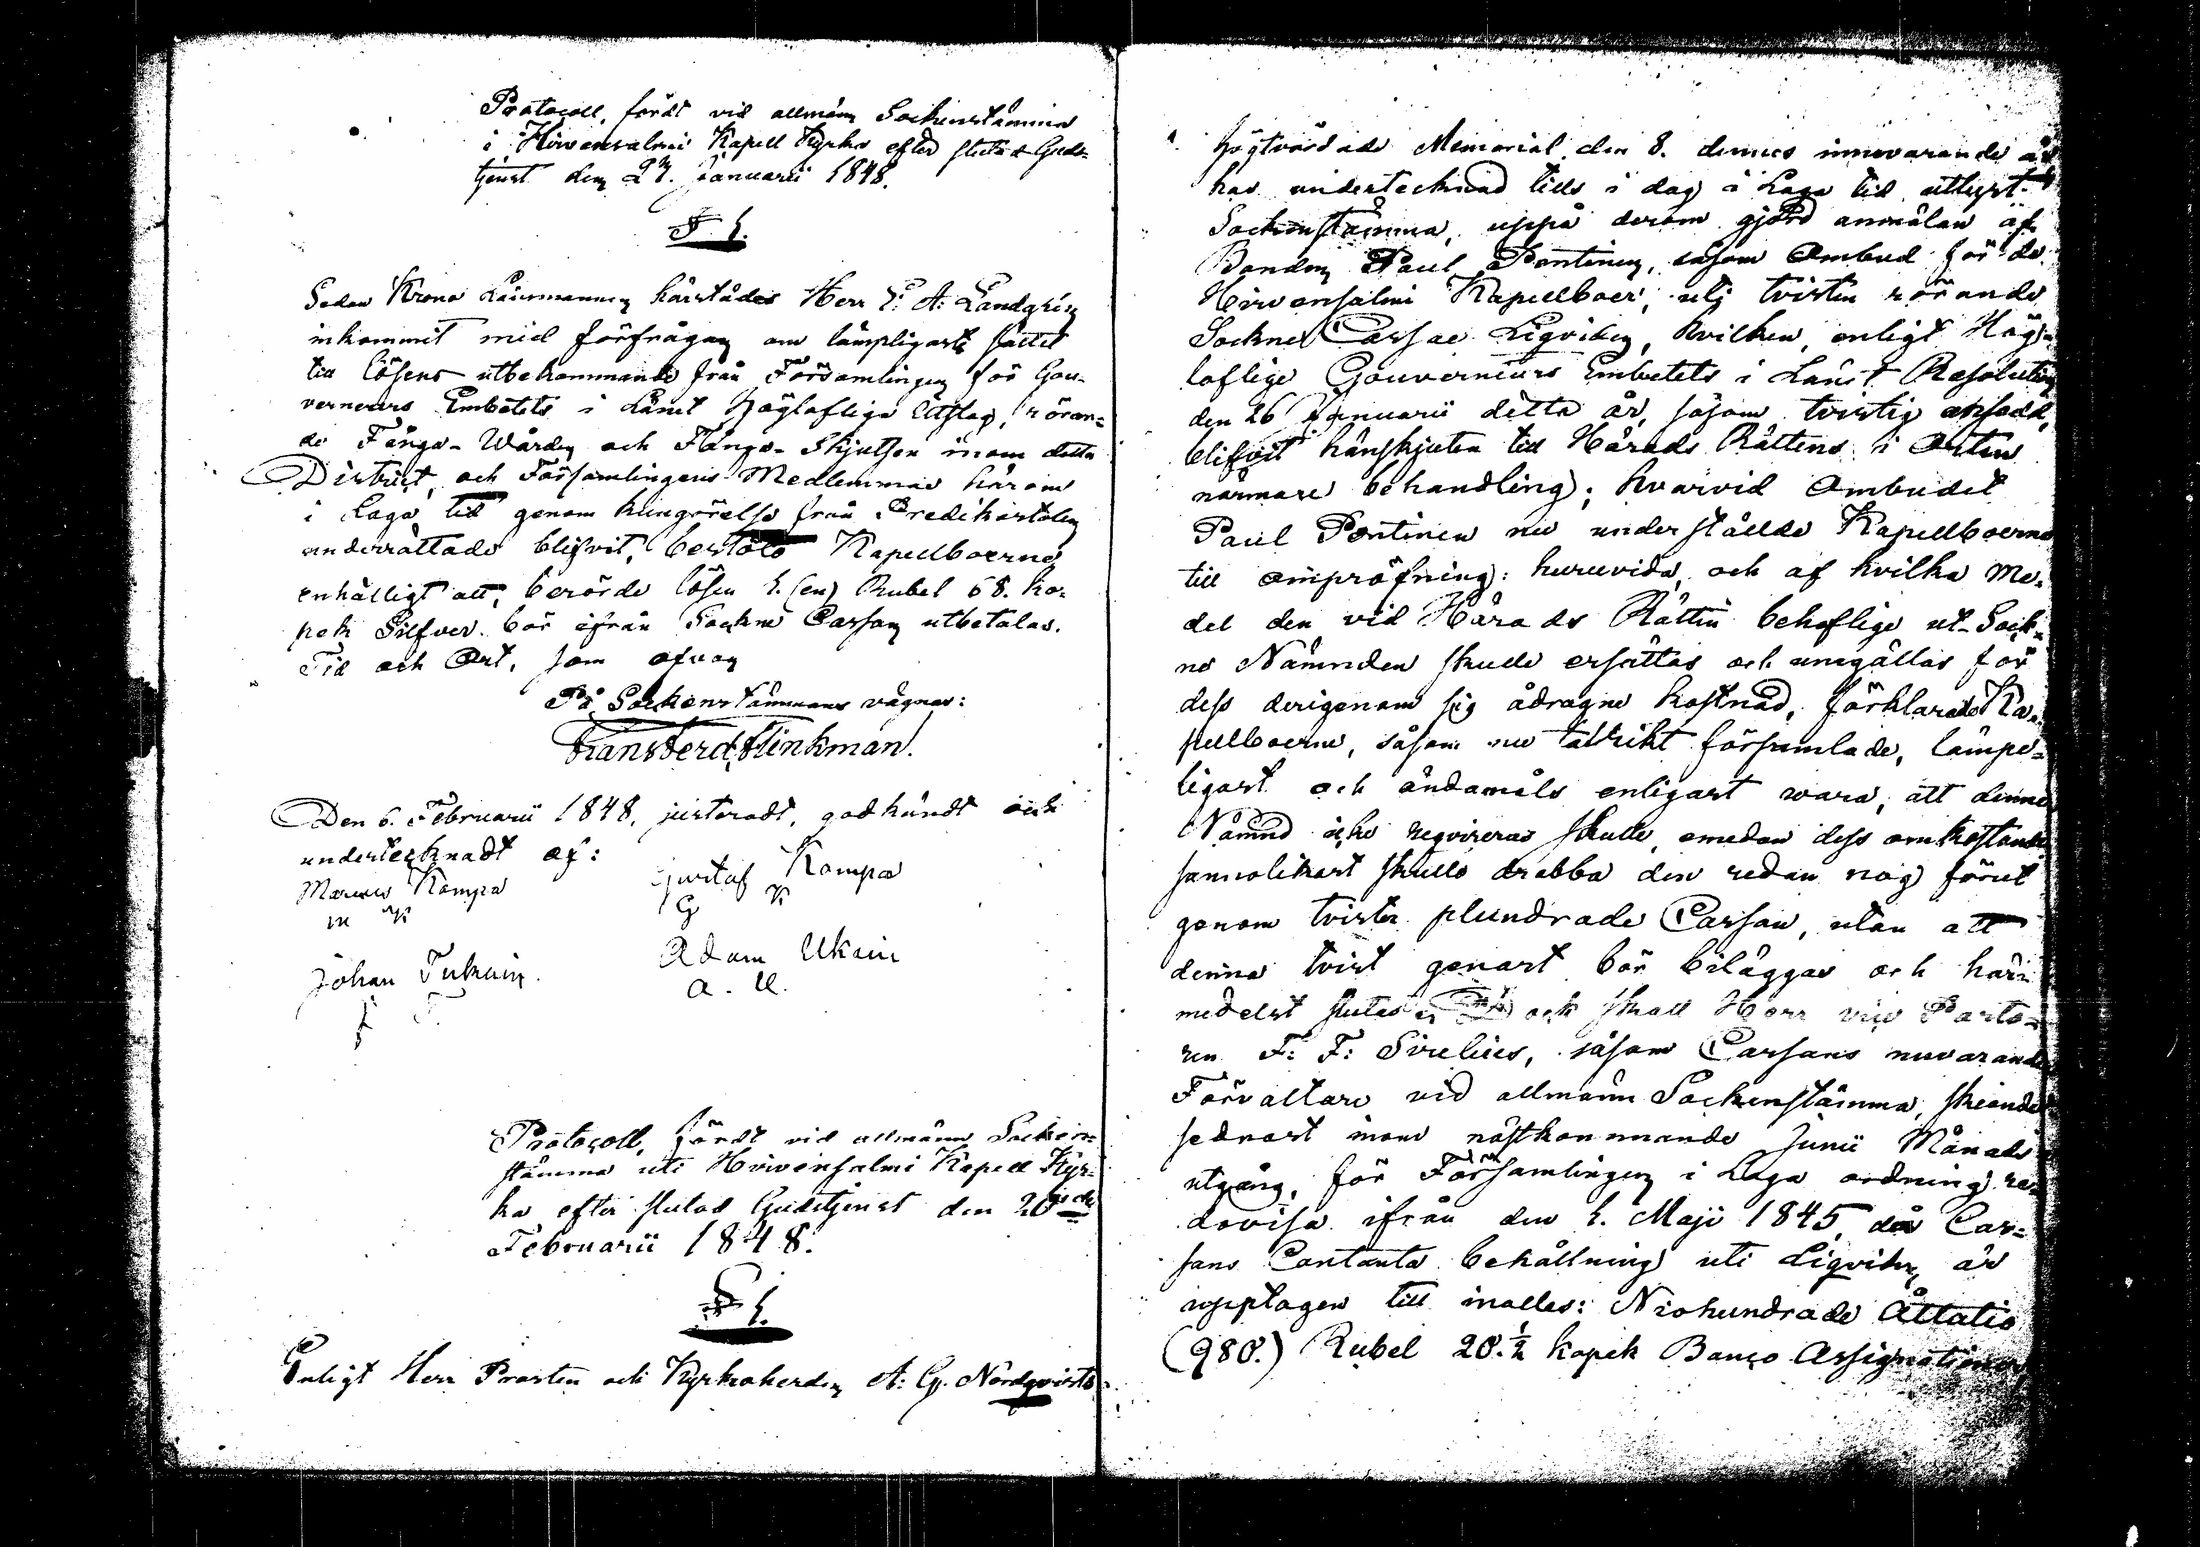 Protocoll, fördt vid allmän Sockenstämma
i Hirvensalmi Kapell Kyrka efter slutad Guds-
tjenst den 27. Januarii 1848.
§ 1.
Sedan Krono Länsmannen härstädes Herr E: A: Landgrén
inkommit med förfrågan om lämpligaste sättet
till lösens utbekommande från Församlingen för Gou-
verneurs Embetets i Länet Höglofliga Utslag, röran-
de Fånge-Wården och Fånge-Skjutsen inom detta
District, och Församlingens Medlemmar härom
i Laga tid genom kungörelse från Predikostolen
underrättade blifvit, besföto Kapellboerne
enhälligt att, berörde lösen 1. (en) Rubel 68. Ko-
pek Silfver bör ifrån Sockne Cassan utbetalas.
Tid och Ort, som ofvan
På Sockenstämmans vägnar:
Frans Ferd. Flinkman.
Den 6. Februarii 1848, justeradt, godkändt och
undertecknadt af:
Marcus Kampa Gustaf Kampa
m K G K
Johan Tukiain. Adam Ukain
J T. A. U.
Protocoll, fördt vid allmänn Socken-
stämma uti Hirvensalmi Kapell Kyr-
ka efter slutad Gudstjenst den 20de
Februarii 1848.
§ 1.
Enligt Herr Prosten och Kyrkoherden A: G. Nordqvists
högtvördade Memorial den 8. dennes innevarande år
har undertecknad tills i dag å Laga tid utlyst
Sockenstämma, uppå derom gjord anmälan af
Bonden Paul Pontinen, såsom Ombud för de
Hirvensalmi Kapellboer, uti tvisten rörande
Sockne Cassae Liqviden, hvilken, enligt Hög-
loflige Gouverneurs Embetets i Länet Resolution
den 26 Januarii detta år, såsom tvistig ansedd,
blifvit hänskjuten till Härads Rättens i Orten
närmare behandling; hvarvid Ombudet
Paul Pontinen nu underställde Kapellboerne
till ompröfning: huruvida, och af hvilka Me-
del den vid Härads Rätten behoflige ut-Sock-
ne Nämnden skulle ersättas och umgällas för
dess derigenom sig ådragne kostnad, förklarade Ka-
pellboerne, såsom nu talrikt församlade, lämpe-
ligast och ändamåls enligast wara, att denna
Nämnd icke reqvireras skulle, emedan dess omkostnad
sannolikast skulle drabba den redan nog förut
genom tvister plundrade Cassan, utan att
denna tvist genast bör biläggas och här-
medelst slutas och skall Herr vice Pasto-
ren F: F: Sirelius, såsom Cassans nuvarande
Förvaltare vid allmänn Sockenstämma, skeende
sednast inom nästkommande Junii Månads
utgång, för Församlingen i Laga ordning re-
dovisa ifrån den 1. Maji 1845, då Cas-
sans Contanta behållning uti Liqviden är
upptagen till inalles: Niohundrade Åttatio
(980.) Rubel 20.½ kopek Banco Assignationer